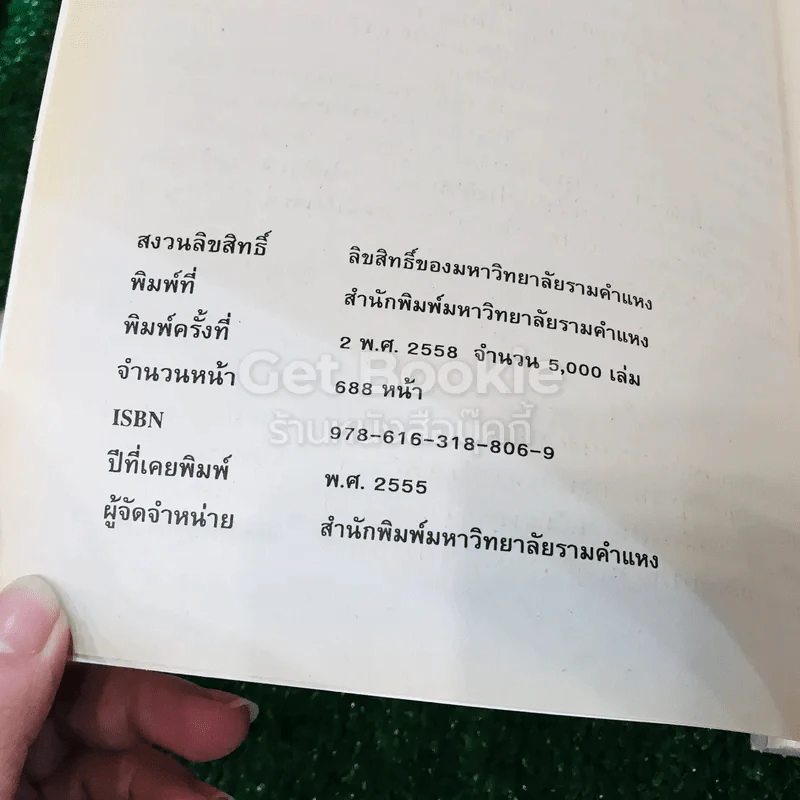 สงวนลิขสิทธิ์ ลิขสิทธิ์ของมหาวิทยาลัยรามคำแหง
พิมพ์ที่ สำนักพิมพ์มหาวิทยาลัยรามคำแหง
พิมพ์ครั้งที่ 2 พ.ศ. 2558 จำนวน 5,000 เล่ม
จำนวนหน้า 688 หน้า
Get Bookie
ร้านหนังสือบุ๊คกี้
ISBN 978-616-318-806-9
ปีที่เคยพิมพ์ พ.ศ. 2555
ผู้จัดจำหน่าย สำนักพิมพ์มหาวิทยาลัยรามคำแหง